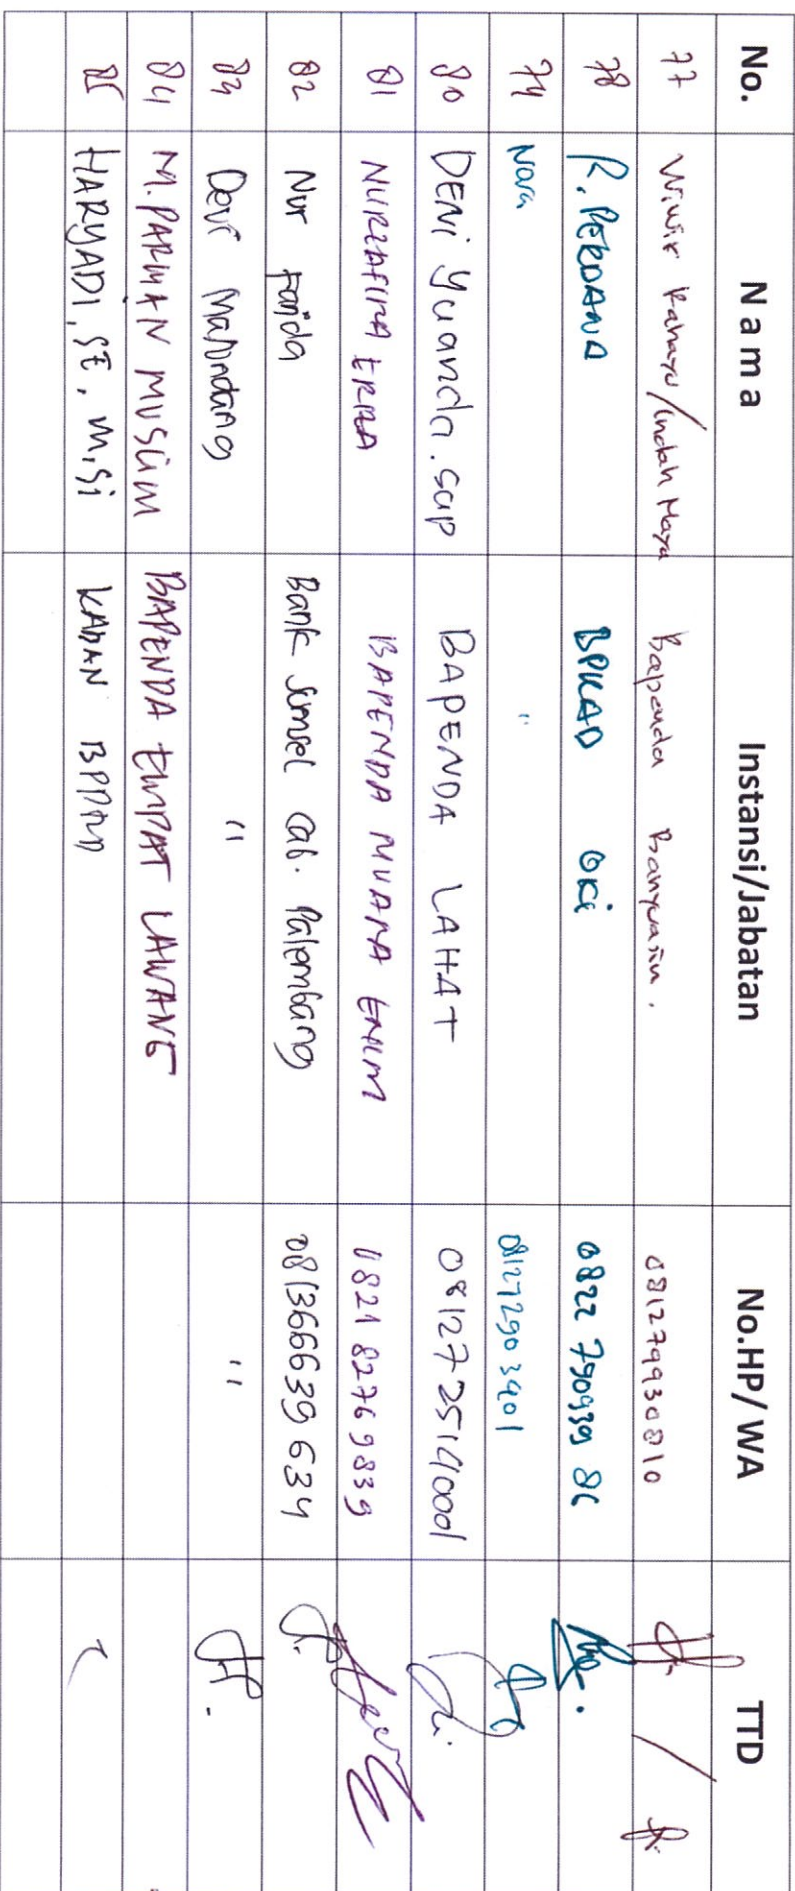 No. Nama Instansi/Jabatan No.HP/ WA TTD
77 Wiwik Rahayu/Indah Maya Bapenda Banyuasin. 081279930810
78 R. PERDANA BPKAD OKi 0822 790939 86
79 Nara " 081272903401
80 DENi Yuanda. SAP BAPENDA LAHAT 081273514000
81 NURZAFIRA ERIZA BAPENDA MUARA ENIM 0821 8276 9839
82 Nur Farida Bank Sumsel Cab. Palembang 081366639634
83 Devi " "
84 M. PARMAN MUSLIM BAPENDA EMPAT LAWANG
85 HARYADI, SE, M.Si KABAN